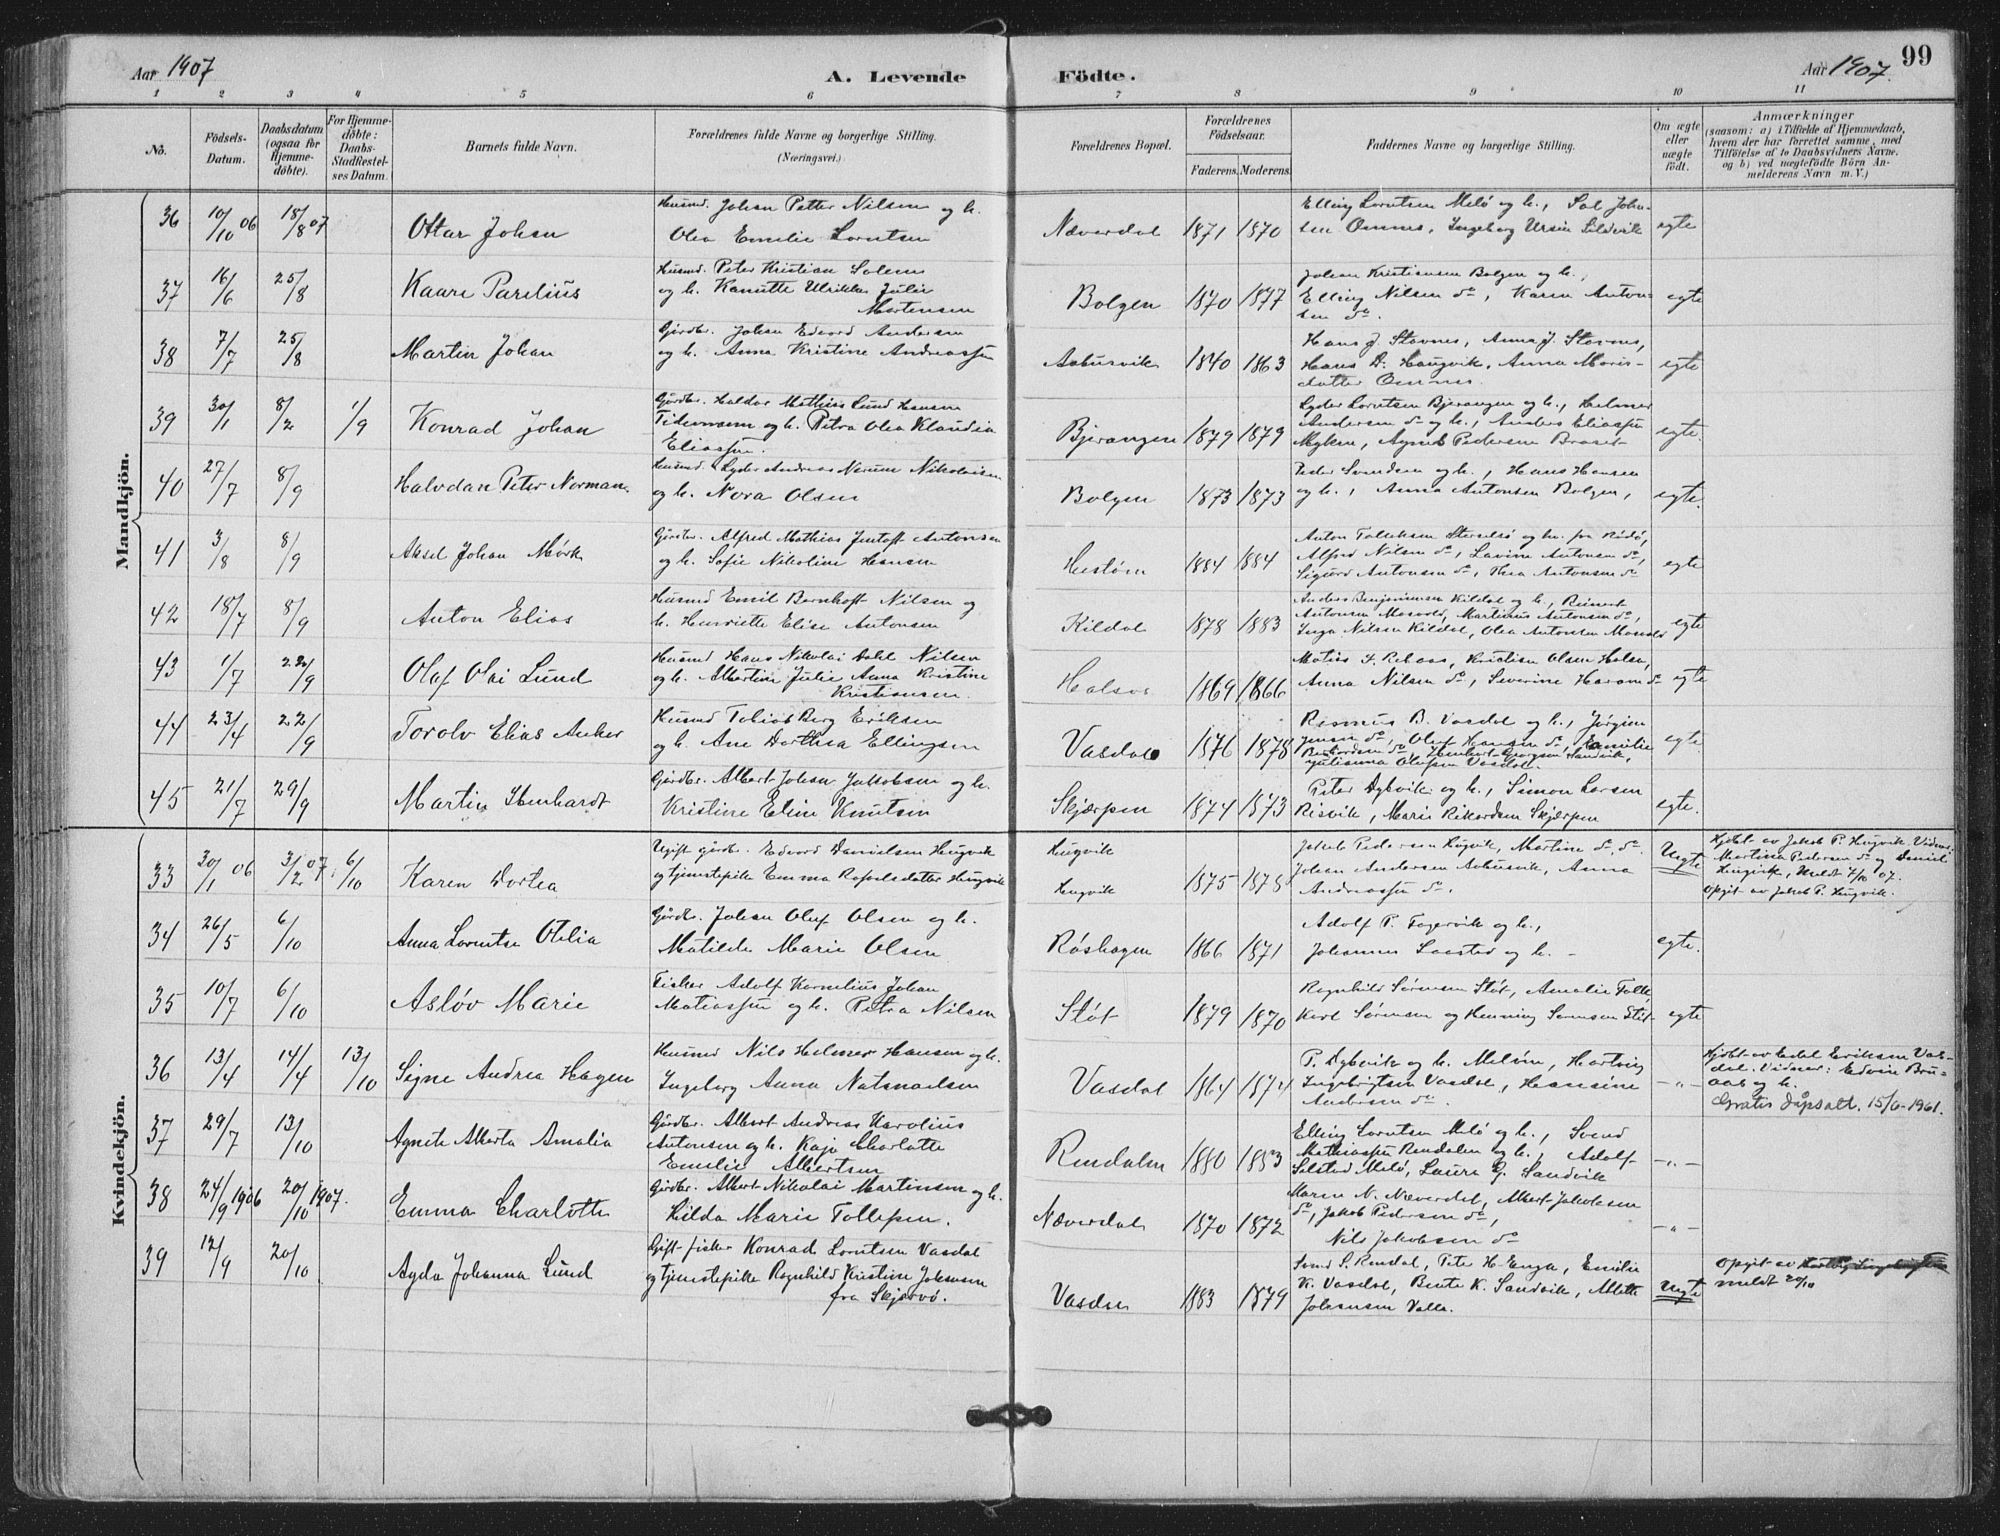 Aar 1907
A. Levende Födte.
Aar 1907.
99
1 2 3 4 5 6 7 8 9 10 11
No.
Födsels-Datum.
Daabsdatum (ogsaa for Hjemmedöbte).
For Hjemmedöbte: Daabs-Stadfæstelses Datum.
Barnets fulde Navn.
Forældrenes fulde Navne og borgerlige Stilling.
(Næringsvei.)
Forældrenes Bopæl.
Forældrenes Födselsaar.
Faderens. Moderens.
Faddernes Navne og borgerlige Stilling.
Om ægte eller uægte födt.
Anmærkninger
(saasom: a) i Tilfælde af Hjemmedaab,
hvem der har forrettet samme, med
Tilföielse af to Daabsvidners Navne.
og b) ved uægtefödte Börn Anmelderens Navn m. V.)
Mandkjön.
36 10/10 06 18/8 07 Ottar Johan
Husmd. Johan Petter Nilsen og h.
Olea Emelie Lorntsen
Næverdal 1871 1870
Elling Lorntsen Melö og h., Sal. John-
sen Omnes, Ingeborg Ursin Sildevik
egte
37 16/6 25/8 Kaare Parelius
Husmd. Peter Kristian Solem
og h. Kanutte Ulrikke Julie
Martensen
Bolgen 1870 1877
Johan Kristiansen Bolgen og h.,
Elling Nilsen do, Karen Anton-
sen do.
egte
38 7/7 25/8 Martin Johan
Gårdbr. Johan Edvard Andersen
og h. Anna Kristine Andreassen
Aabusvik 1840 1863
Hans J. Stavnes, Anna J. Stavnes,
Hans D. Haugvik, Anna Moris-
datter Omnes.
egte
39 30/1 8/2 1/9 Konrad Johan
Gårdbr. Haldor Mathias Lund Hansen
Tidemann og h. Petra Olea Klaudia
Eliassen.
Bjerangen 1879 1879
Lyder Lorntsen Bjerangen og h., Helmer
Andersen do og h., Anders Eliassen
Myken, Agnes Pedersen Braset
egte.
40 27/7 8/9 Halvdan Peter Norman.
Husmd. Lyder Andreas Nerum Nikolaisen
og h. Nora Olsen
Bolgen 1873 1873
Peder Svendsen og h., Hans Hansen
og h., Anna Antonsen Bolgen,
egte.
41 3/8 8/9 Aksel Johan Mörk
Gårdbr. Alfred Mathias Jentoft Antonsen
og h. Sofie Nikoline Hansen
Hestöen 1884 1884
Anton Tollefsen Storselsö og h. fra Rödö,
Alfred Nilsen do, Lavine Antonsen do,
Sigurd Antonsen do, Thea Antonsen do
egte
42 18/7 8/9 Anton Elias
Husmd Emil Bernhoft Nilsen og
h. Henriette Elise Antonsen
Kildal 1878 1883
Anders Benjaminsen Kildal og h., Reinert
Antonsen Mosvold, Martinus Antonsen do,
Inga Nilsen Kildal, Olea Antonsen Mosvold
egte
43 1/7 22/9 Olaf Olai Lund
Husmd Hans Nikolai Dahl Nilsen
og h. Albertine Julie Anna Kristine
Kristiansen.
Halsos 1869 1866
Kristian Olsen Halsa,
Anna Nilsen do, Severine do
egte
44 23/4 22/9 Torolv Elias Anker
Husmd Tobias Berg Eriksen
og h. Ane Dorthea Ellingsen
Vasdal 1876 1878
Rasmus B. Vasdal og h., Jörgen
Jensen do, Oluf Hansen do, Emilie
Rikardsen do, Ibenhart Georgsen Sandvik,
Julianna Olufsen Vasdal.
egte.
45 21/7 29/9 Martin Ibenhardt
Gårdbr. Albert Johan Jakobsen og h.
Kristine Eline Knutsen
Skjærpen 1874 1873
Peter Dybvik og h., Simon Larsen
Risvik, Marie Rikardsen Skjærpen
egte.
Kvindekjön.
33 30/1 06 3/2 07 6/10 Karen Dortea
Ugift gårdbr. Edvard Danielsen Haugvik
og tjenestepike Emma Rafaelsdatter Haugvik
Haugvik
Haugvik 1875 1878
Jakob Pedersen Haugvik, Martine do. do.
Johan Andersen Aabusvik, Anna
Andreassen do.
Uegte
Hjdbt av Jakob P. Haugvik. Vidner:
Martina Pedersen do og Daniel
Haugvik, Meldt 7/10 07.
Opgit av Jakob P. Haugvik.
34 26/5 6/10 Anna Lorentse Otelia
Gårdbr. Johan Oluf Olsen og h.
Matilde Marie Olsen
Röshagen 1866 1871
Adolf P. Fagervik og h.,
Johannes Saastad og h. -
egte.
35 10/7 6/10 Aslöv Marie
Fisker Adolf Kornelius Johan
Matiassen og h. Petra Nilsen
Stöt 1879 1870
Ragnhild Sörensen Stöt, Amalie Falk,
Karl Sörensen og Henning Sörensen Stöt
egte
36 13/4 14/4 13/10 Signe Andrea Hagen
Husmd Nils Helmer Hansen og h.
Ingeborg Anna Natanaelsen
Vasdal 1864 1874
P. Dybvik og h. Melöen, Hartvig
Ingebrigtsen Vasdal, Hansine
Andersen do.
-"-
Hjdbt av Edel Eriksen Vas-
dal. Vidner: Edvin Bru-
aas og h.
Gratis dåpsatt. 15/6-1961.
37 29/7 13/10 Agnete Alberta Amalia
Gårdbr. Albert Andreas Karolius
Antonsen og h. Kaja Charlotte
Emelie Albertsen
Rendalen 1880 1883
Elling Lorntsen Melö og h., Svend
Mathiassen Rendalen og h., Adolf
Selstad Melö, Laura G. Sandvik
-"-
38 24/9 1906 20/10 1907. Emma Charlotte
Gårdbr. Albert Nikolai Martinsen og h.
Hilda Marie Tollefsen.
Næverdal 1870 1872
Maren N. Næverdal, Albert Jakobsen
do, Jakob Pedersen do,
Nils Jakobsen do
-"-
39 12/9 20/10 Agda Johanna Lund
Gift fisker Konrad Lorntsen Vasdal
og tjenestepike Ragnhild Kristine Johansen
fra Skjervö.
Vasdal 1883 1879
Svend S. Rendal, Peter H. Enga, Emilie
K. Vasdal, Bente K. Sandvik, Alette
Johansen Valla.
uegte
Opgit av
meldt 20/10